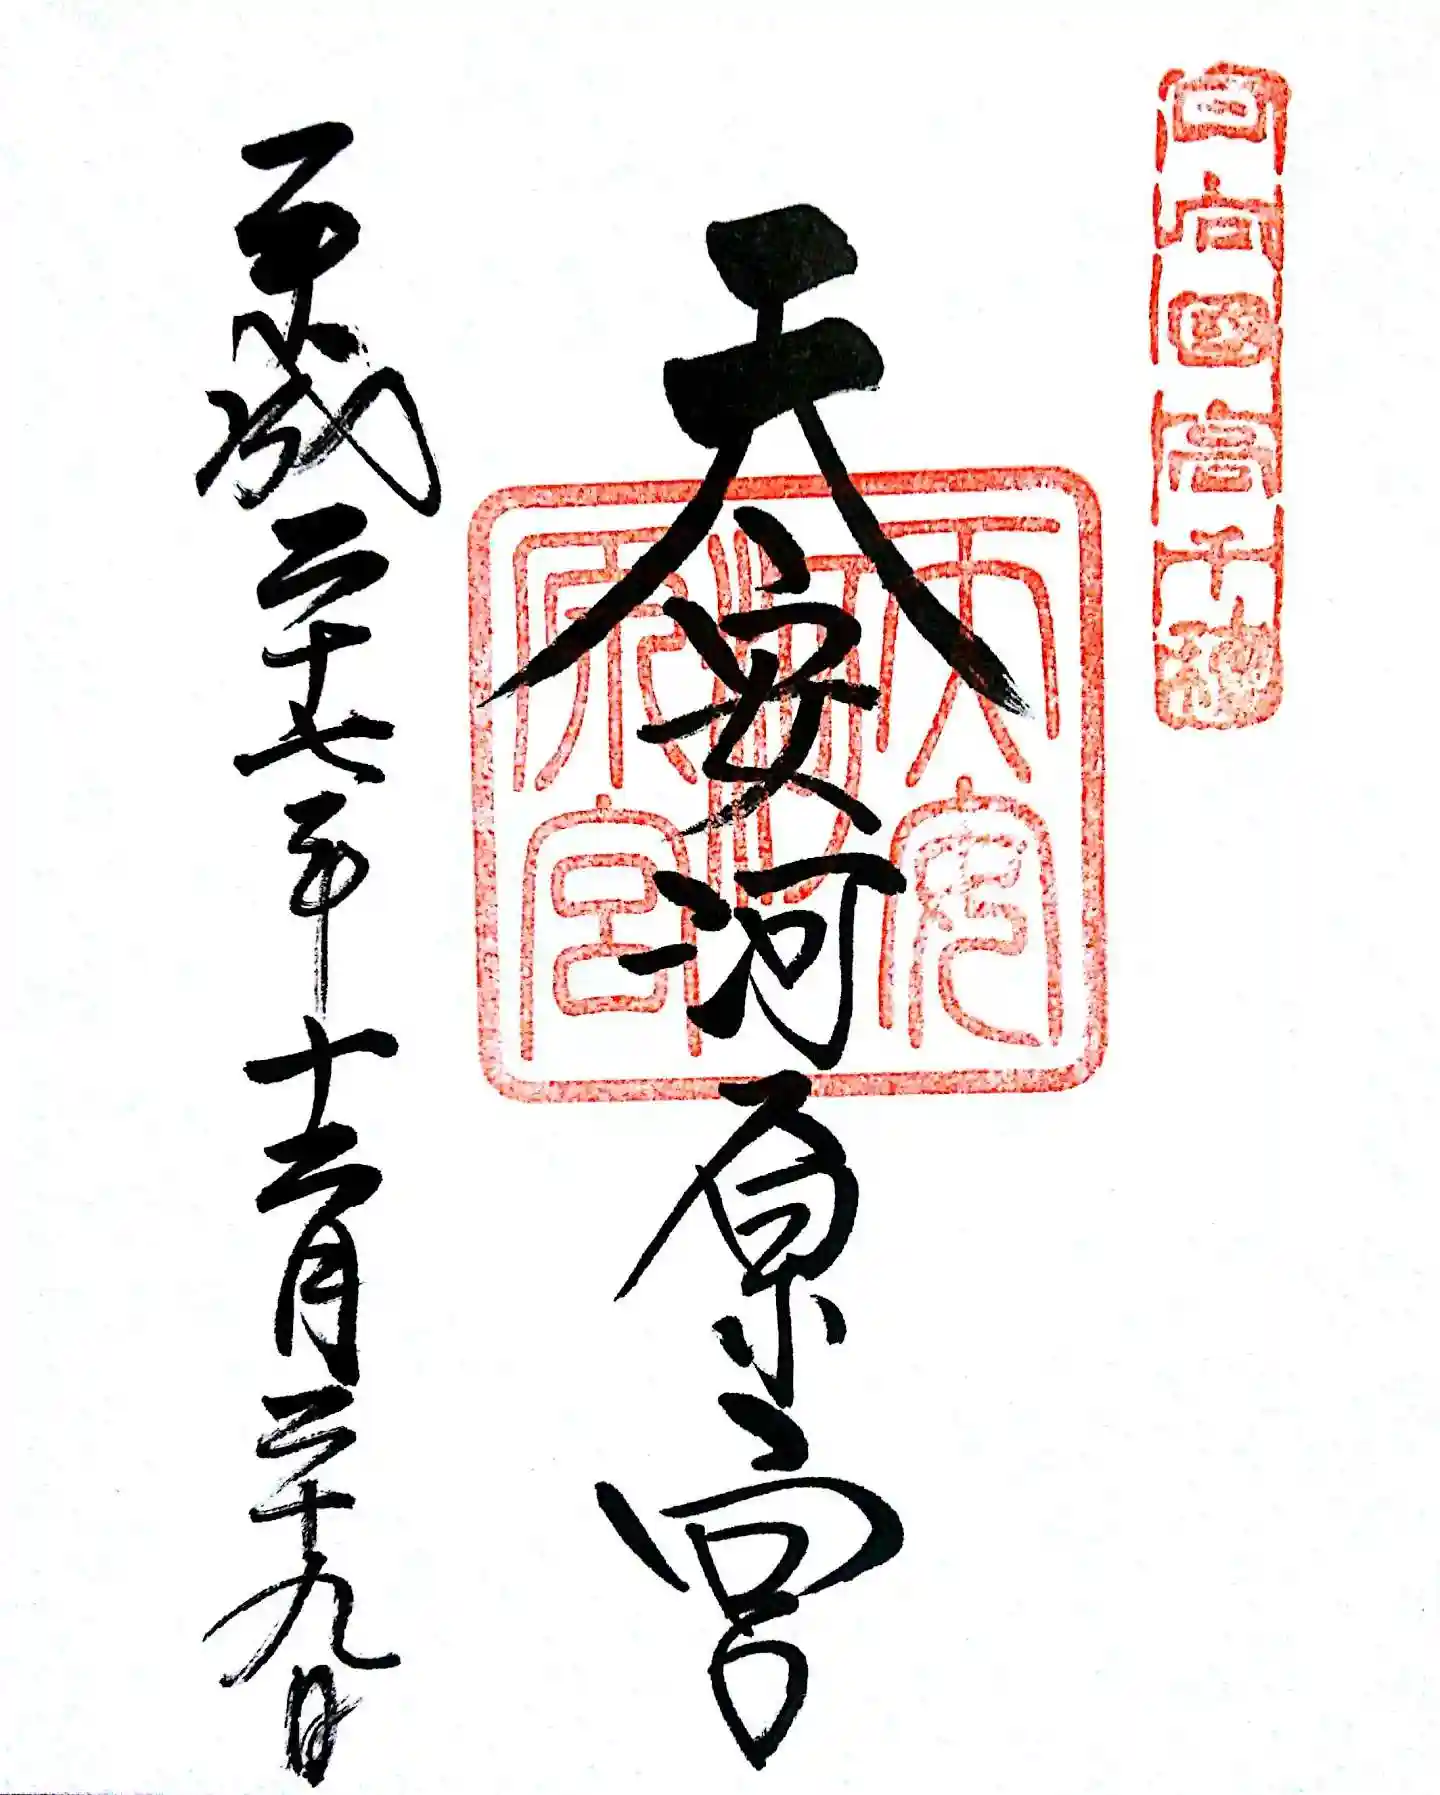 日向國高千穂
天安河原宮
天安
河
原宮
平成二十七年十二月二十九日